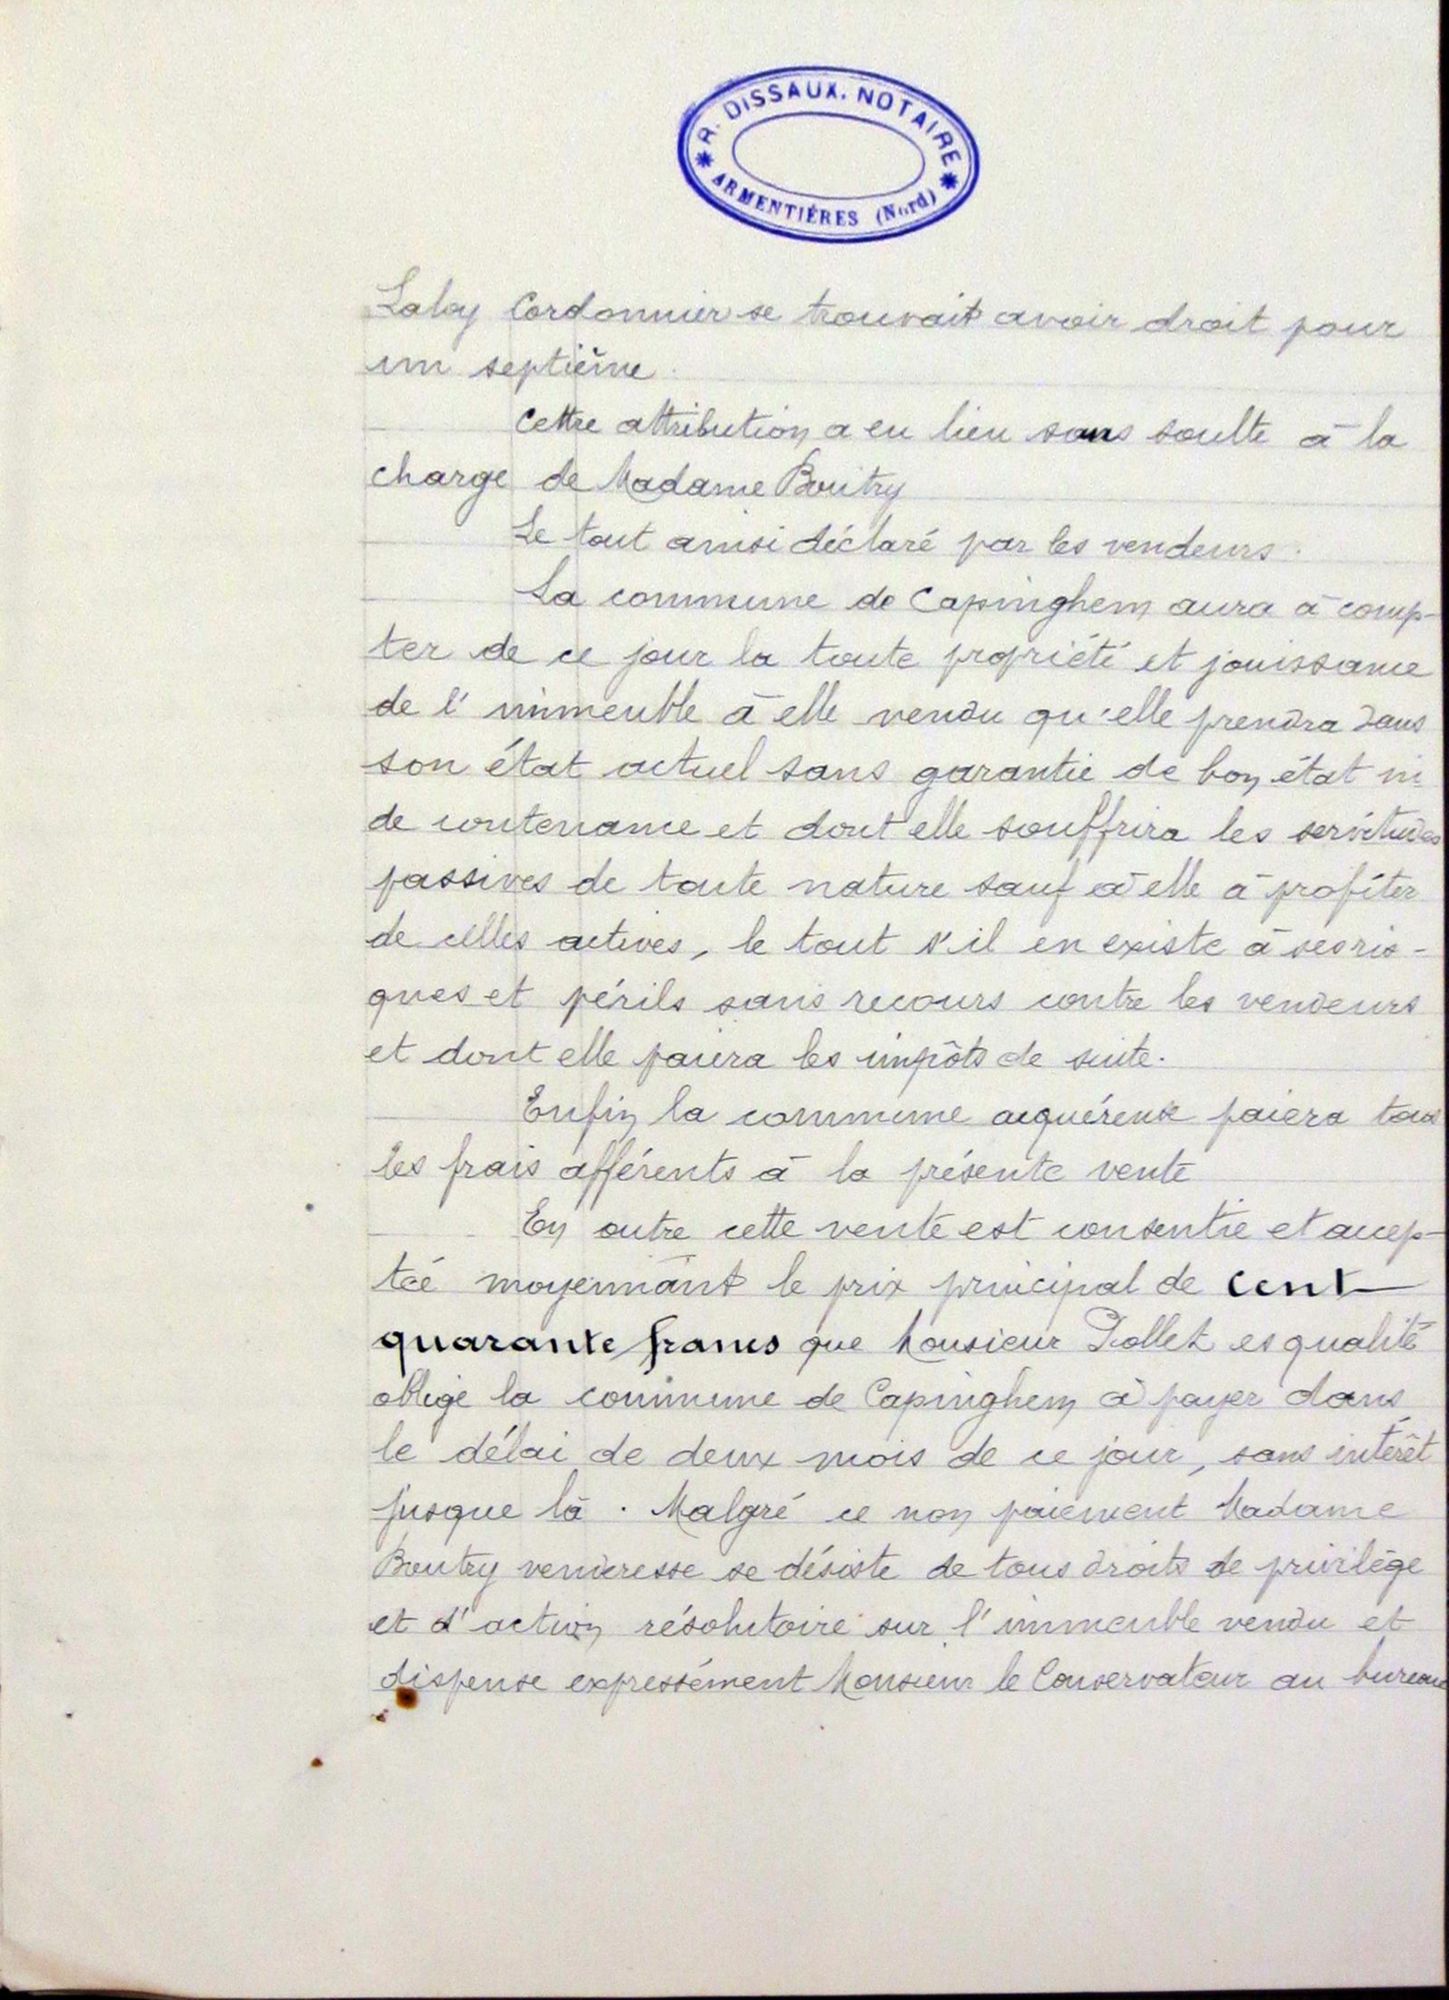 R. DISSAUX. NOTAIRE
ARMENTIÉRES (Nord)
Laloy Cordonnier se trouvait avoir droit pour
un septième.
Cette attribution a eu lieu sans soulte à la
charge de Madame Boutry
Le tout ainsi déclaré par les vendeurs.
La commune de Capinghem aura à comp-
ter de ce jour la toute propriété et jouissance
de l'immeuble à elle vendu qu'elle prendra dans
son état actuel sans garantie de bon état ni
de contenance et dont elle souffrira les servitudes
passives de toute nature sauf à elle à profiter
de celles actives, le tout s'il en existe à ses ris-
ques et périls sans recours contre les vendeurs
et dont elle paiera les impôts de suite.
Enfin la commune acquéreur paiera tous
les frais afférents à la présente vente
En outre cette vente est consentie et accep-
tée moyennant le prix principal de cent
quarante francs que Monsieur Pollet es qualité
oblige la commune de Capinghem à payer dans
le délai de deux mois de ce jour, sans intérêt
jusque là. Malgré ce non paiement Madame
Boutry venderesse se désiste de tous droits de privilège
et d'action résolutoire sur l'immeuble vendu et
dispense expressément Monsieur le Conservateur au bureau